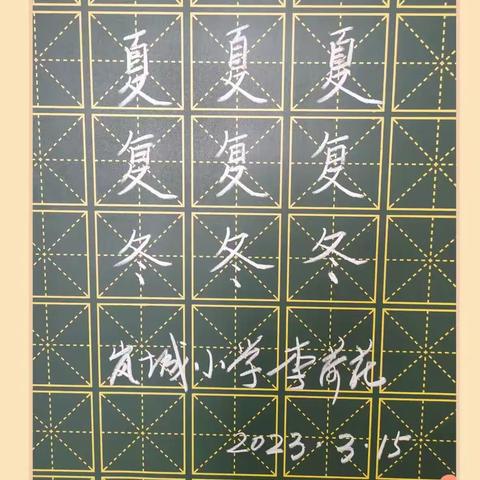 夏夏夏
复复复
冬冬冬
岚城小学李荷花
2023.3.15